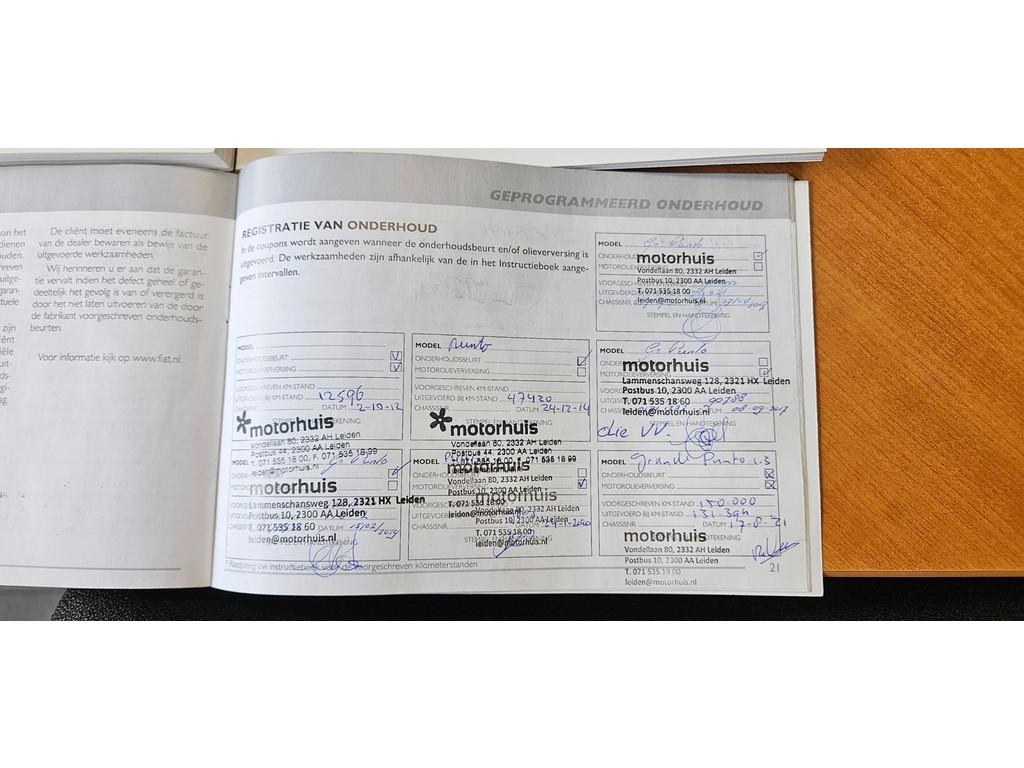 GEPROGRAMMEERD ONDERHOUD
van het
dienen
ouden.
hreven
uitge-
garan-
ctuele
zijn
ënt
iële
uit-
ds-
gi-
ag.
De cliënt moet eveneens de factuur
van de dealer bewaren als bewijs van de
uitgevoerde werkzaamheden.
Wij herinneren u er aan dat de garan-
tie vervalt indien het defect geheel of ge-
deeltelijk het gevolg is van of verergerd is
door het niet laten uitvoeren van de door
de fabrikant voorgeschreven onderhouds-
beurten.
Voor informatie kijk op www.fiat.nl.
REGISTRATIE VAN ONDERHOUD
In de coupons wordt aangeven wanneer de onderhoudsbeurt en/of olieverversing is
uitgevoerd. De werkzaamheden zijn afhankelijk van de in het Instructieboek aange-
geven intervallen.
MODEL Gr Punto
motorhuis
Vondellaan 80, 2332 AH Leiden
Postbus 10, 2300 AA Leiden
T. 071 535 18 00
leiden@motorhuis.nl
STEMPEL EN HANDTEKENING
MODEL
ONDERHOUDSBEURT
MOTOROLIEVERVERSING
VOORGESCHREVEN KM-STAND
UITGEVOERD BIJ KM-STAND 12596
CHASSISNR. DATUM 2-10-12
motorhuis
Vondellaan 80, 2332 AH Leiden
Postbus 44, 2300 AA Leiden
T. 071 535 18 00, F. 071 535 18 99
leiden@motorhuis.nl
MODEL Punto
ONDERHOUDSBEURT
MOTOROLIEVERVERSING
VOORGESCHREVEN KM-STAND
UITGEVOERD BIJ KM-STAND 47420
CHASSISNR. DATUM 24-12-14
motorhuis
Vondellaan 80, 2332 AH Leiden
Postbus 44, 2300 AA Leiden
MODEL Gr Punto
motorhuis
Lammenschansweg 128, 2321 HX Leiden
Postbus 10, 2300 AA Leiden
T. 071 535 18 60
leiden@motorhuis.nl
90788
DATUM 08-09-2017
STEMPEL EN HANDTEKENING
olie VV.
MODEL Gr Punto
motorhuis
Lammenschansweg 128, 2321 HX Leiden
Postbus 10, 2300 AA Leiden
T. 071 535 18 60
DATUM 15/02/2019
leiden@motorhuis.nl
MODEL
motorhuis
Vondellaan 80, 2332 AH Leiden
Postbus 10, 2300 AA Leiden
T. 071 535 18 00
motorhuis
Vondellaan 80, 2332 AH Leiden
Postbus 10, 2300 AA Leiden
T. 071 535 18 00
leiden@motorhuis.nl
DATUM 24-1-2020
MODEL Grande Punto 1.3
ONDERHOUDSBEURT
MOTOROLIEVERVERSING
VOORGESCHREVEN KM-STAND 150.000
UITGEVOERD BIJ KM-STAND 131.394
CHASSISNR. DATUM 17-8-21
motorhuis
Vondellaan 80, 2332 AH Leiden
Postbus 10, 2300 AA Leiden
T. 071 535 18 00
leiden@motorhuis.nl
* Raadpleeg uw instructieboek voor de voorgeschreven kilometerstanden
21